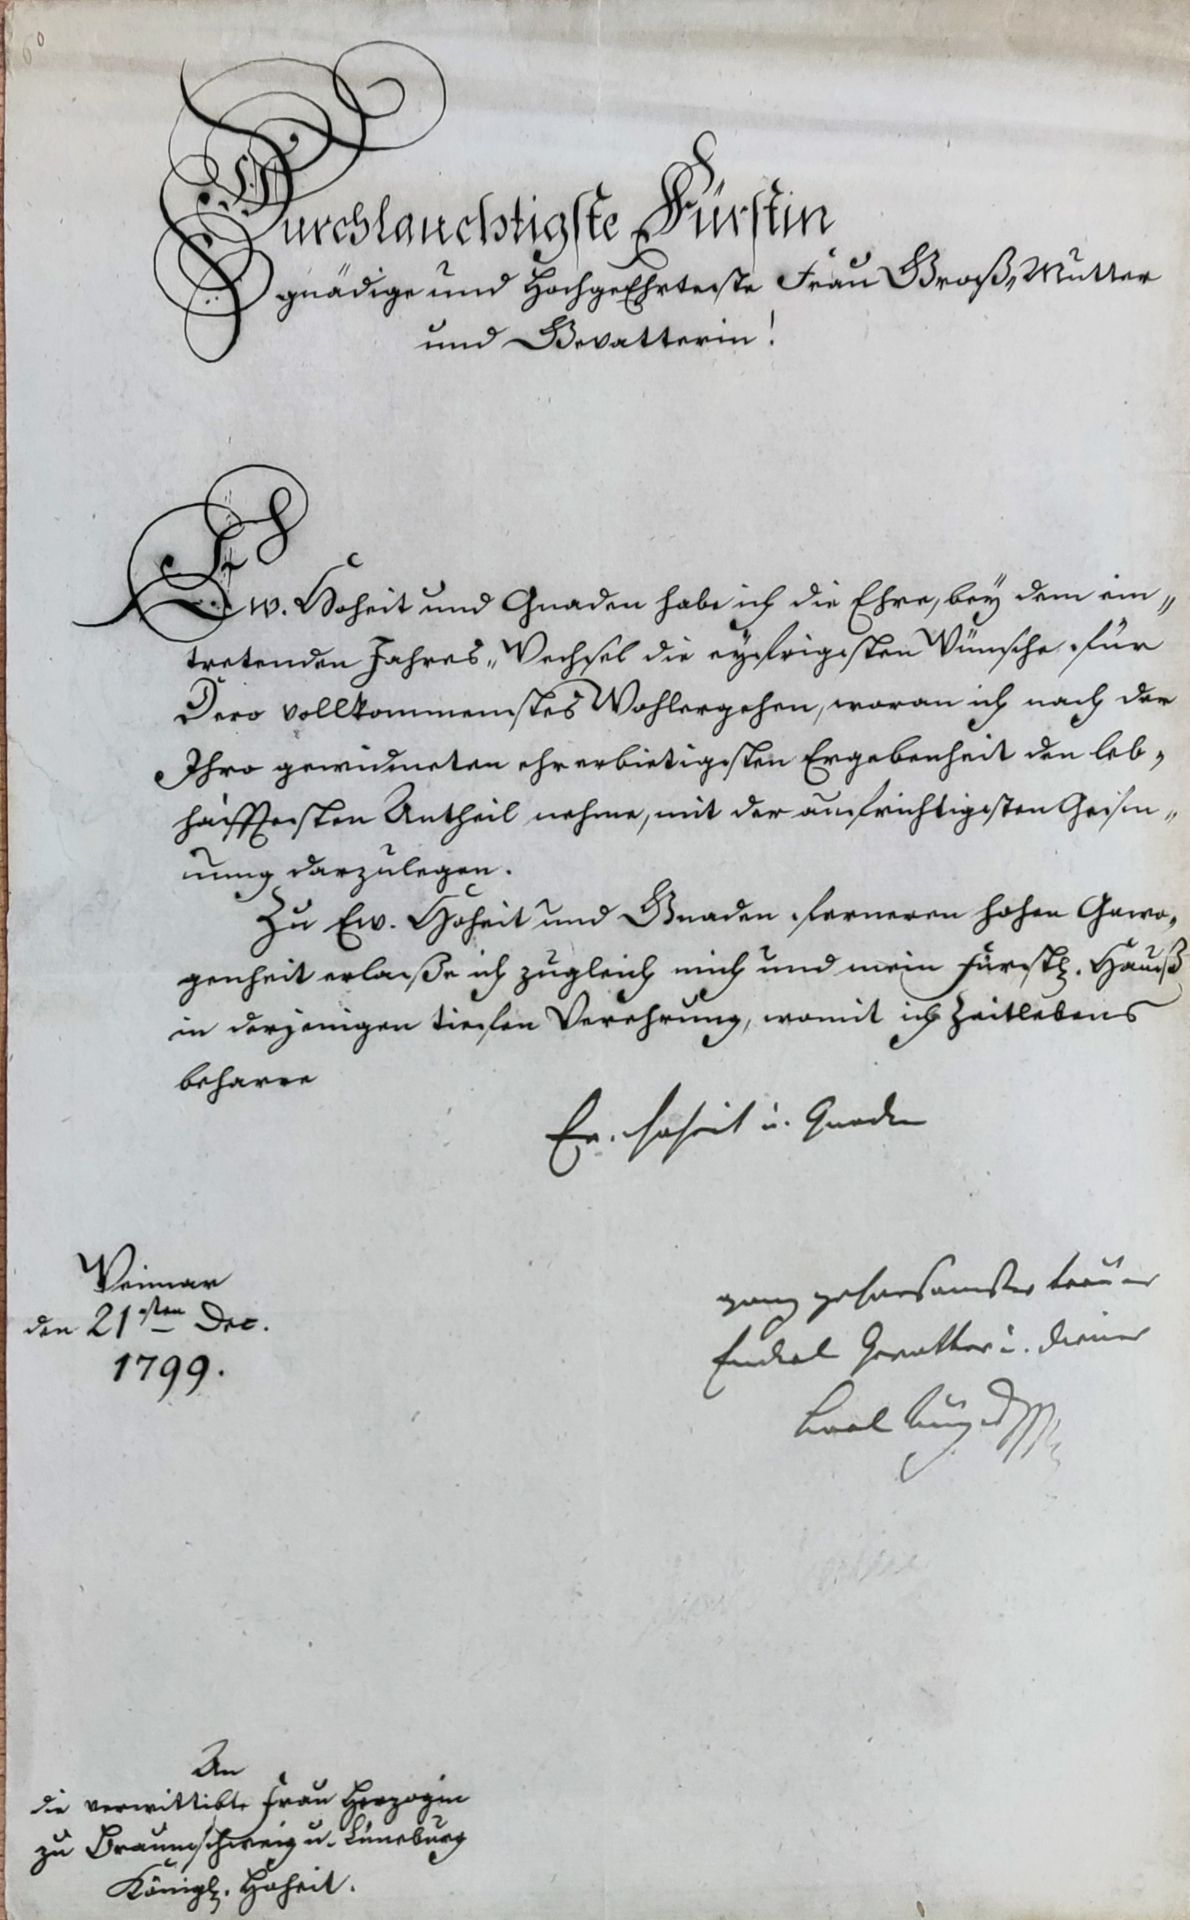 Durchlauchtigste Fürstin
gnädige und HochgeEhrteste Frau Groß„Mutter
und Gevatterin!
Ew. Hoheit und Gnaden habe ich die Ehre, bey dem ein„
tretenden Jahres„Wechsel die eyfrigsten Wünsche für
Dero vollkommenstes Wohlergehen, woran ich nach der
Ihro gewidmeten ehrerbietigsten Ergebenheit den leb„
hafftesten Antheil nehme, mit der aufrichtigsten Gesin„
nung darzulegen.
Zu Ew. Hoheit und Gnaden ferneren hohen Gewo„
genheit erlaße ich zugleich mich und mein Fürstl. Hauß
in derjenigen tiefen Verehrung, womit ich Zeitlebens
beharre
Ew. Hoheit u. Gnaden
Weimar
den 21sten Dec.
1799.
ganz gehorsamster treuer
Enckel Gevatter u. Diener
Carl August
An
die verwittibte Frau Herzogin
zu Braunschweig u. Lüneburg
Königl. Hoheit.